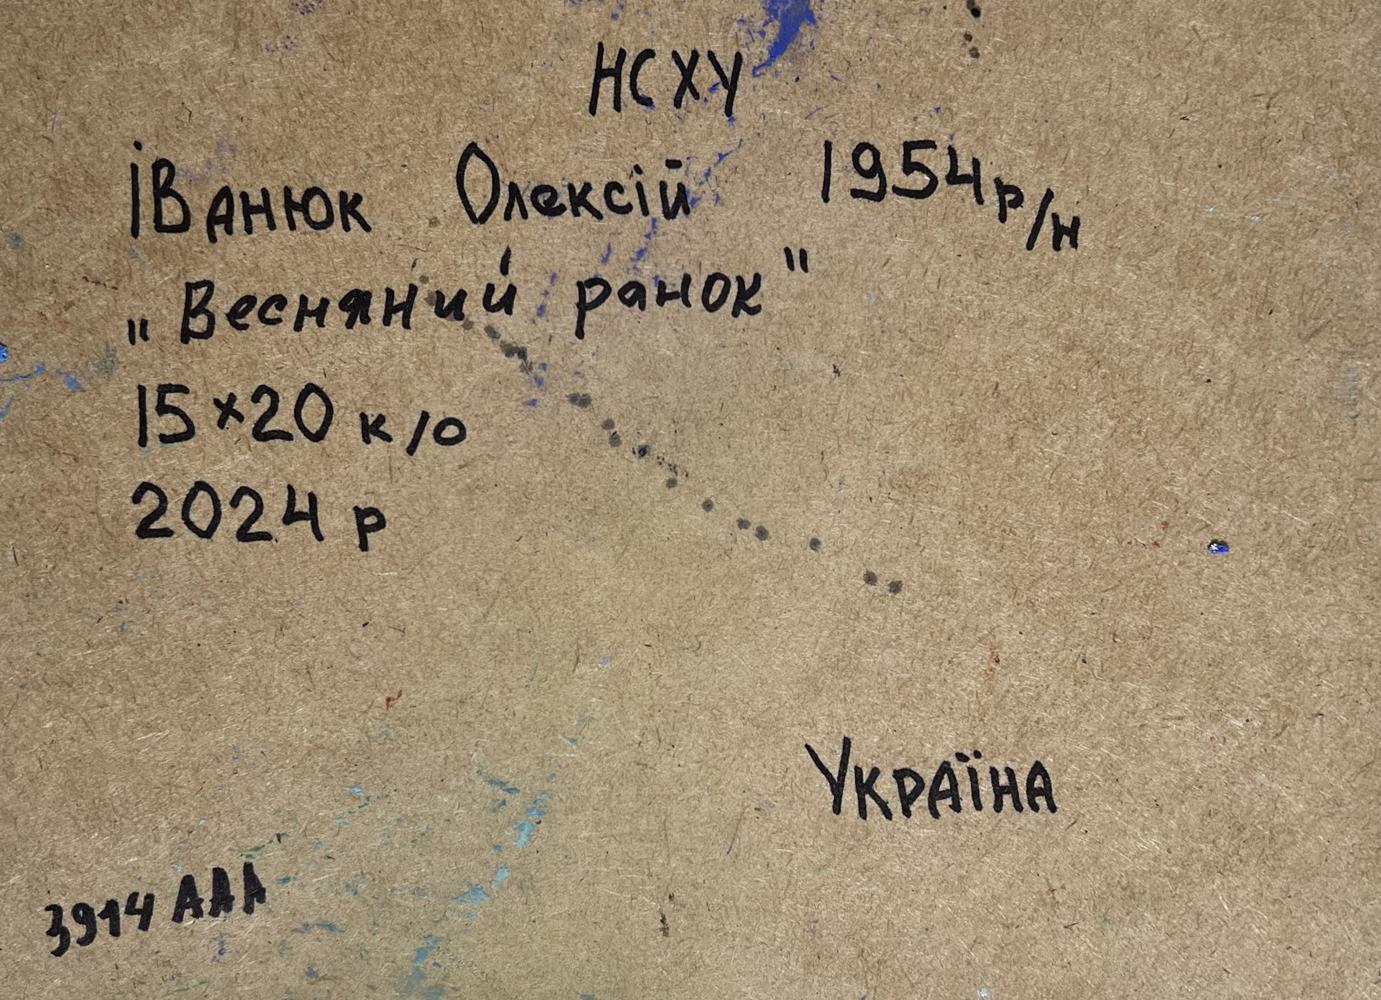 НСХУ
Іванюк Олексій 1954 р/н
„Весняний ранок"
15×20 к/о
2024 р
Україна
3914 ААА